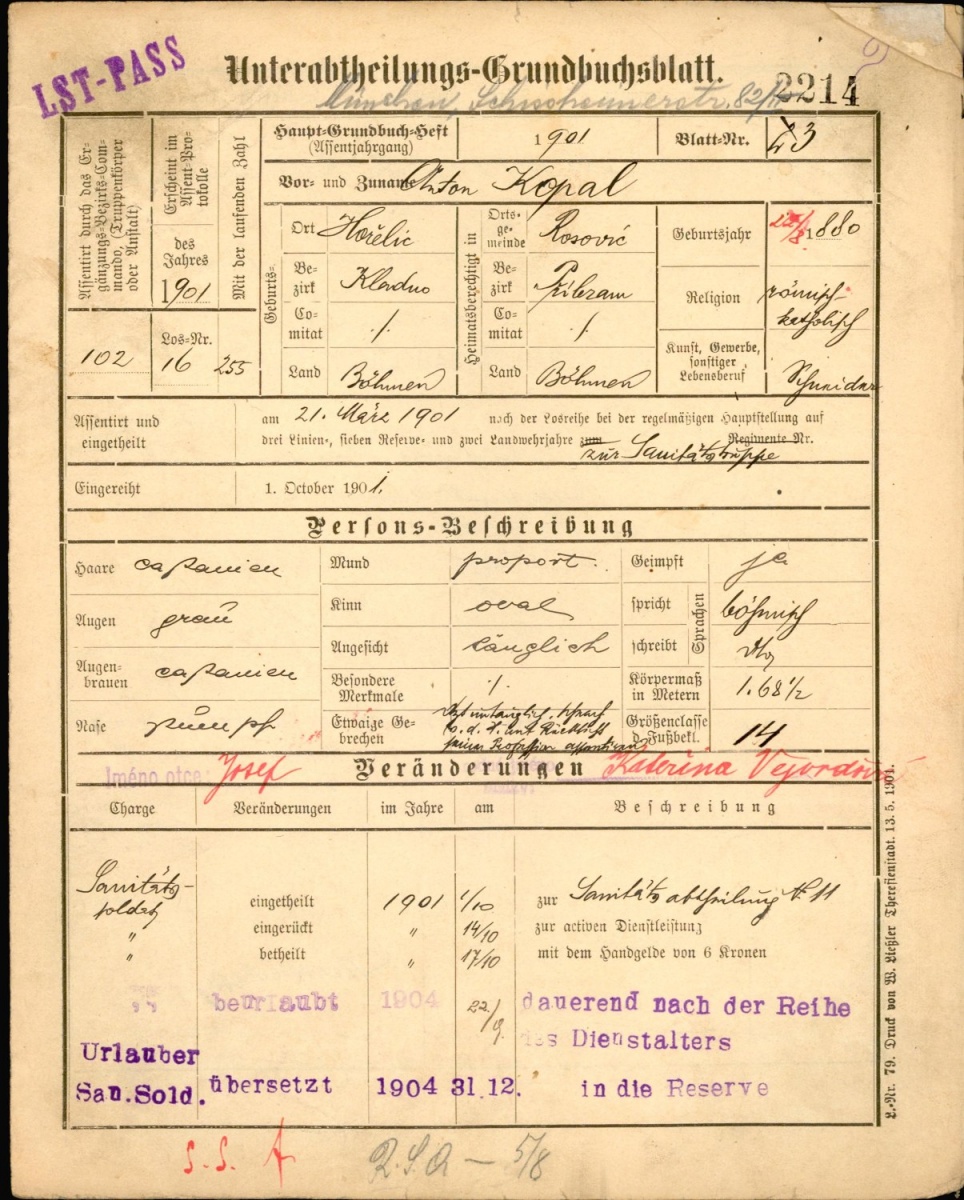 LST-PASS
Unterabtheilungs-Grundbuchsblatt.
2214
München, 82/
Assentirt durch das Ergänzungs-Bezirks-Commando, (Truppenkörper oder Anstalt)
102
Erscheint im Assent-Protokolle
des Jahres
1901
Los-Nr.
16
Mit der laufenden Zahl
255
Haupt-Grundbuch-Heft
(Assentjahrgang)
1901
Blatt-Nr.
23
Vor- und Zuname Anton Kopal
Geburts-
Ort Hořelic
Bezirk Kladno
Comitat ./.
Land Böhmen
Heimatsberechtigt in
Ortsgemeinde Rosovic
Bezirk Přibram
Comitat ./.
Land Böhmen
Geburtsjahr 1880
Religion römisch-katholisch
Kunst, Gewerbe, sonstiger Lebensberuf
Schneider
Assentirt und eingetheilt
am 21. März 1901 nach der Losreihe bei der regelmäßigen Hauptstellung auf
drei Linien-, sieben Reserve- und zwei Landwehrjahre zum Regimente Nr.
zur Sanitätstruppe
Eingereiht
1. October 1901.
Persons-Beschreibung
Haare castanien
Mund proport.
Geimpft ja
Augen grau
Kinn oval
spricht böhmisch
Sprachen
Angesicht länglich
schreibt dto
Augenbrauen castanien
Besondere Merkmale ./.
Körpermaß in Metern 1.68½
Nase stumpf
Etwaige Gebrechen
seiner Profession assentiren
Größenclasse d. Fußbekl. 14
Jméno otce: Josef
Veränderungen
Kateřina
Charge Veränderungen im Jahre am Beschreibung
Sanitäts-
soldat eingetheilt 1901 1/10 zur Sanitätsabtheilung N. 11
" eingerückt " 14/10 zur activen Dienstleistung
" betheilt " 17/10 mit dem Handgelde von 6 Kronen
" beurlaubt 1904 22/9. dauernd nach der Reihe
des Dienstalters
Urlauber
San. Sold. übersetzt 1904 31.12. in die Reserve
L.-Nr. 79. Druck von W. Ließler Theresienstadt. 13. 5. 1901.
S. S.
5/8